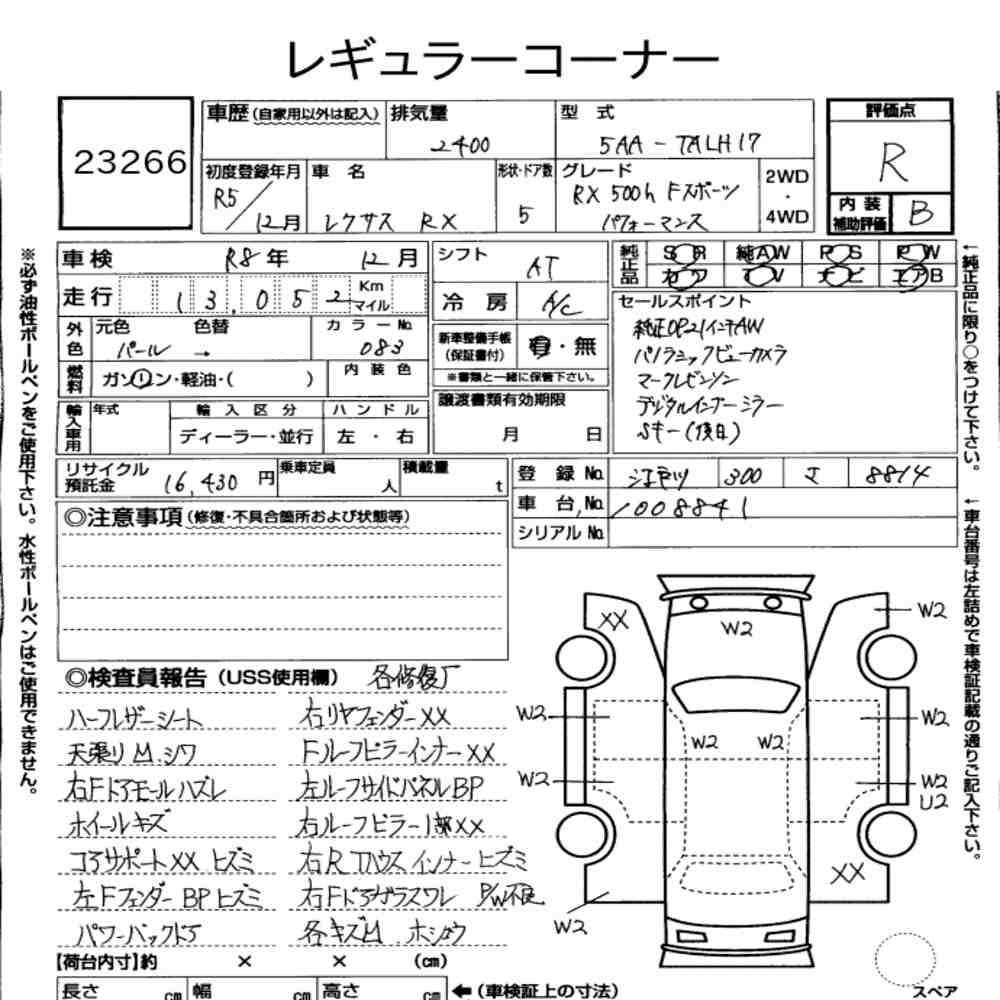 レギュラーコーナー
23266
車歴(自家用以外は記入) 排気量 2400
型式 5AA-TALH17
評価点 R
内装補助評価 B
初度登録年月 R5/12月
車名 レクサス RX
形状・ドア数 5
グレード RX 500h Fスポーツ
パフォーマンス
2WD・4WD
車検 R8年 12月
走行 13,052 Km マイル
外色 元色 パール 色替 → カラーNo. 083
燃料 ガソリン・軽油・( ) 内装色
輸入車用 年式 輸入区分 ハンドル
ディーラー・並行 左・右
シフト AT
冷房 A/C
新車整備手帳(保証書付) 有・無
※書類と一緒に保管下さい。
譲渡書類有効期限
月 日
純正品 SR 純AW PS PW
カワ TV ナビ エアB
セールスポイント
純正OP21インチAW
パノラミックビューカメラ
マークレビンソン
デジタルインナーミラー
Sキー(後日)
リサイクル預託金 16,430円 乗車定員 人 積載量 t
登録No. 江戸川 300 8814
車台No. 1008841
シリアルNo.
◎注意事項(修復・不具合箇所および状態等)
◎検査員報告(USS使用欄) 各修復厂
ハーフレザーシート
天張りM シワ
右Fドアモールハズレ
ホイールキズ
コアサポートXX ヒズミ
左Fフェンダー BP ヒズミ
パワーバックドア
右リヤフェンダーXX
Fルーフピラーインナー XX
左ルーフサイドパネルBP
右ルーフピラー1部XX
右R Tハウスインナーヒズミ
右Fドアガラスワレ P/W不良
各キズM ホショウ
XX
W2
W2
W2
W2
W2 W2
W2
W2
U2
XX
W2
【荷台内寸】約 × × (cm)
長さ cm 幅 cm 高さ cm ←(車検証上の寸法)
スペア
※必ず油性ボールペンをご使用下さい。水性ボールペンはご使用できません。
←純正品に限り○をつけて下さい。
←車台番号は左詰めで車検証記載の通りご記入下さい。